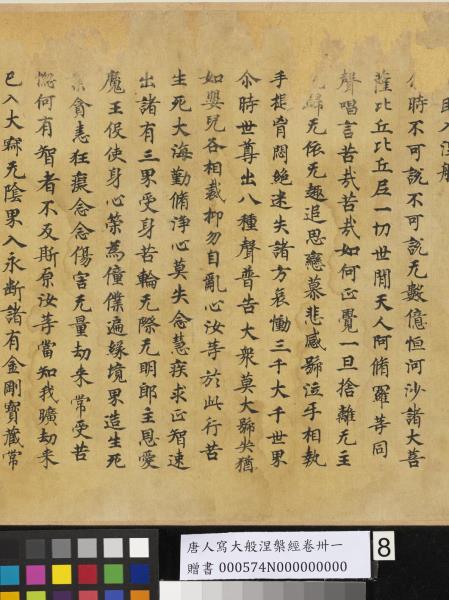 入涅
時不可說不可說无數億恒河沙諸大菩
薩比丘比丘尼一切世閒天人阿脩羅等同
聲唱言苦哉苦哉如何正覺一旦捨離无主
歸无依无趣追思戀慕悲感號泣手相執
手搥胷悶絕迷失諸方哀慟三千大千世界
尒時世尊出八種聲普告大衆莫大號哭猶
如嬰兒各相裁抑勿自亂心汝等於此行苦
生死大海勤脩淨心莫失念慧疾求正智速
出諸有三界受身苦輪无際无明郎主恩愛
魔王役使身心榮爲僮僕遍緣境界造生死
業貪恚狂癡念念傷害无量劫來常受苦
惱何有智者不反斯原汝等當知我曠劫來
已入大寂无陰界入永斷諸有金剛寶藏常
唐人寫大般涅槃經卷卅一
贈書 000574N000000000
8